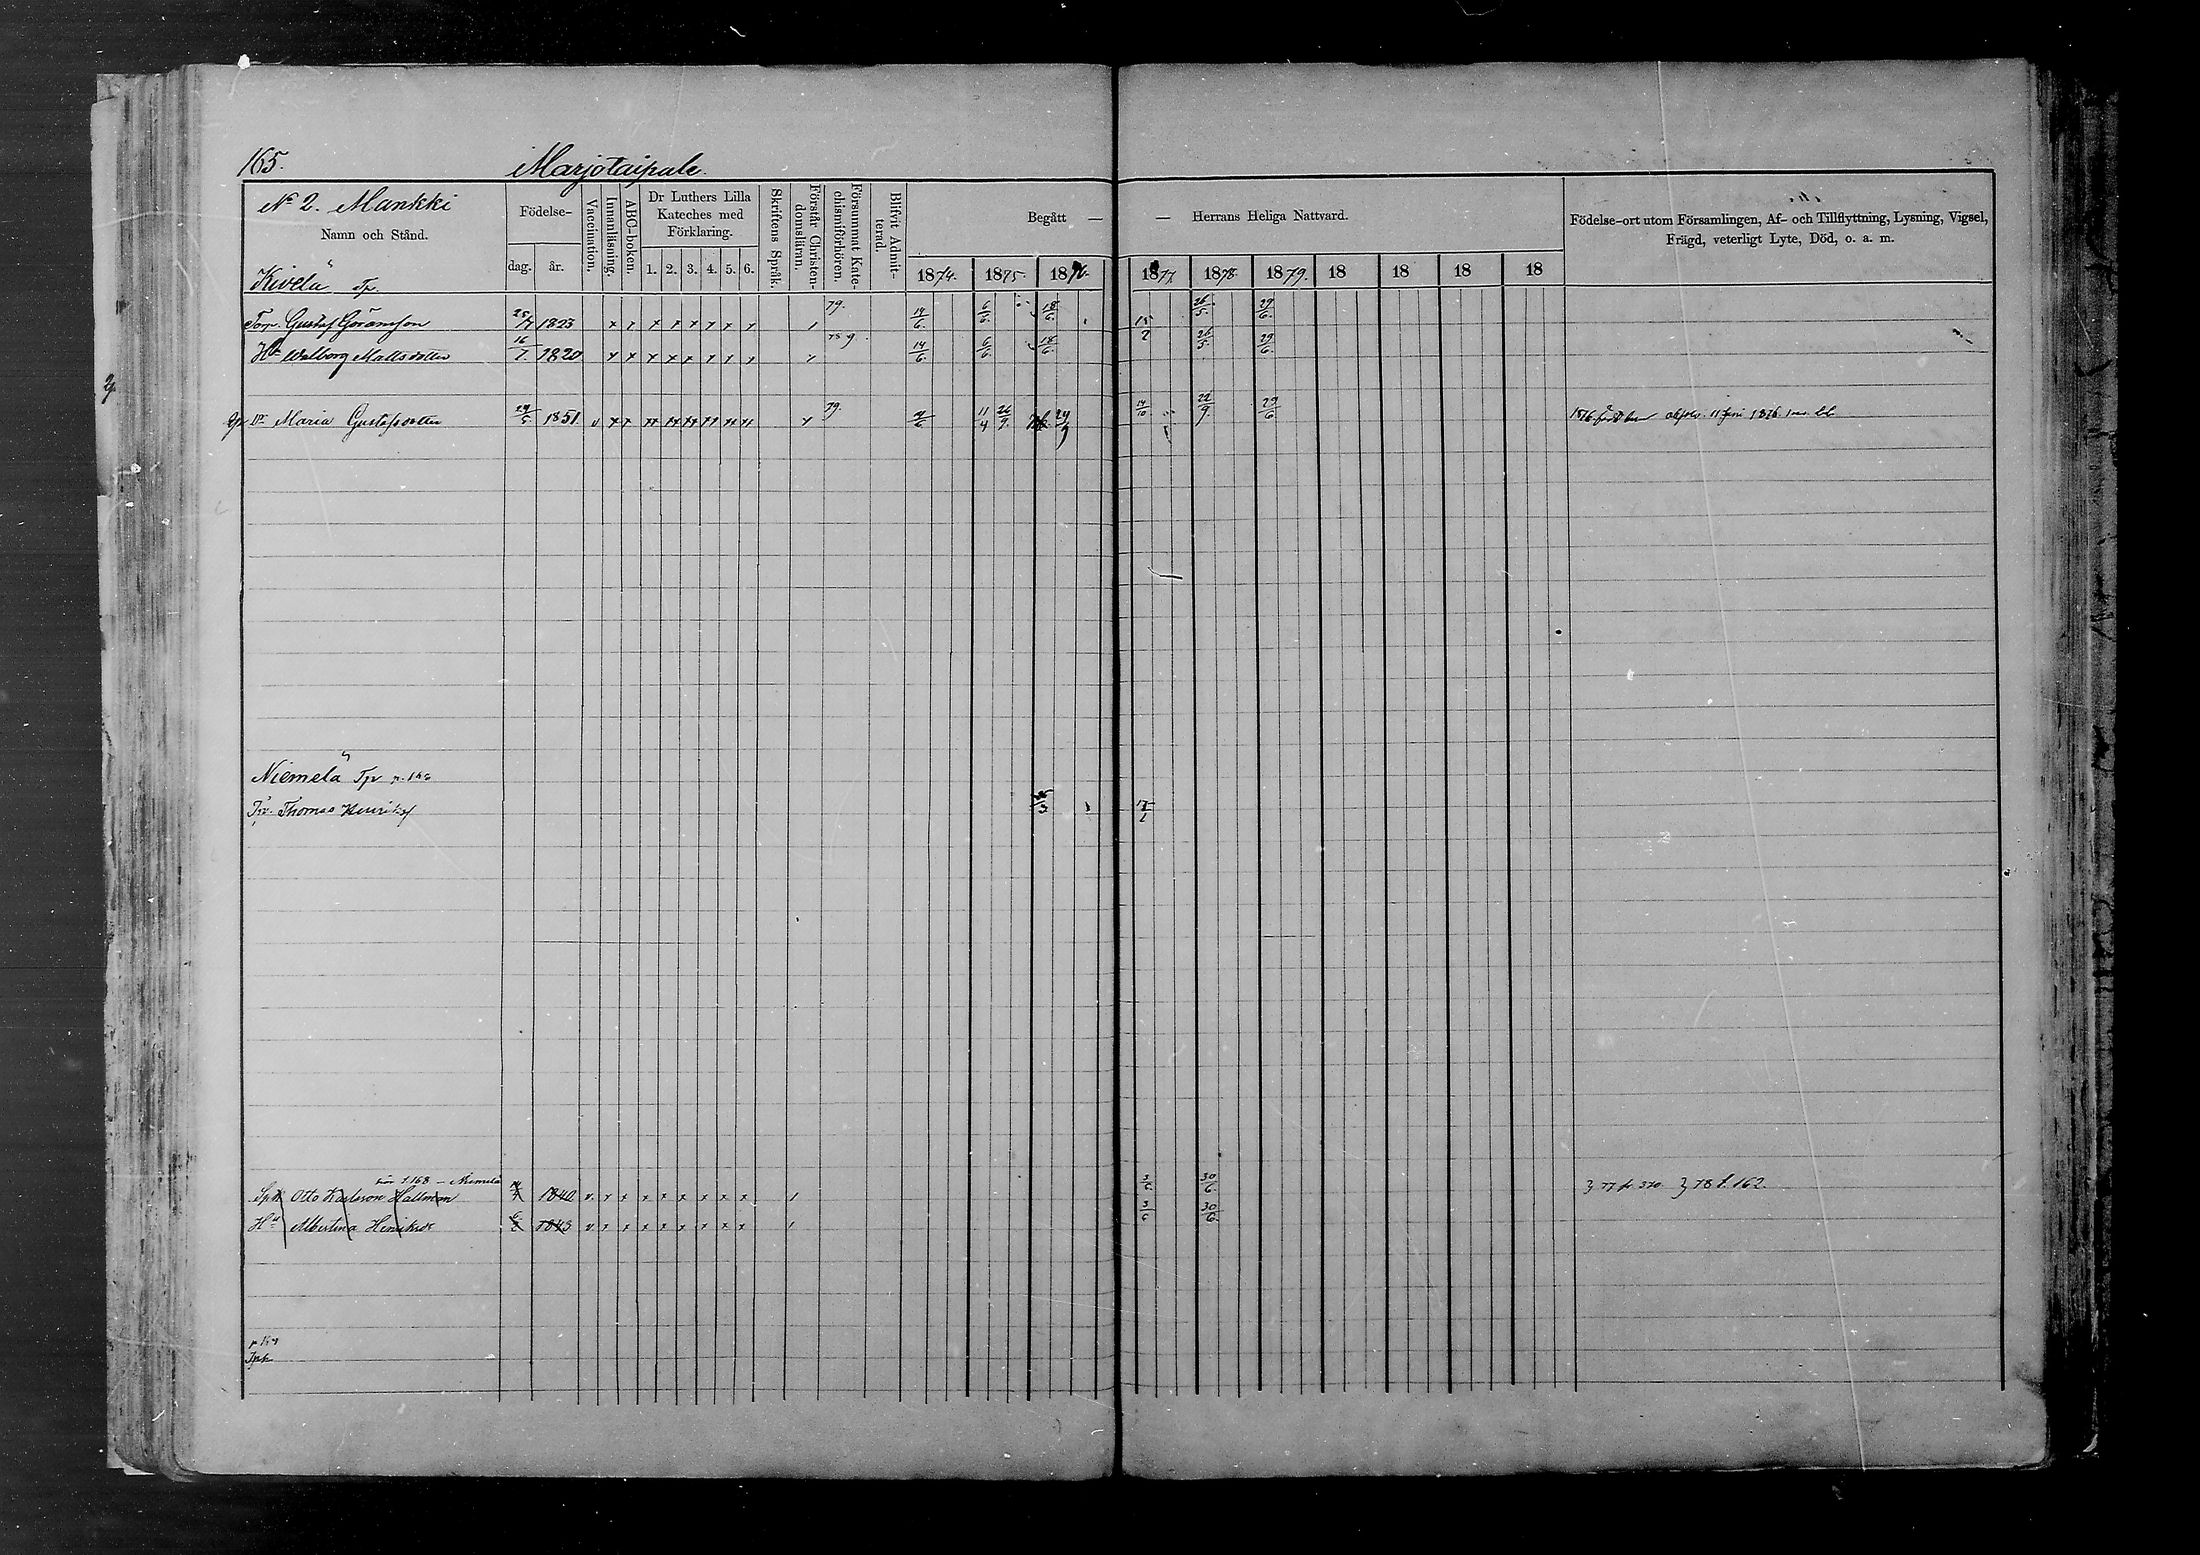 165. Marjotaipale.
No 2. Mankki
Namn och Stånd.
Födelse-
dag. år.
Vaccination.
Innanläsning.
ABC-boken.
Dr Luthers Lilla Kateches med Förklaring.
1. 2. 3. 4. 5. 6.
Skriftens Språk.
Förstår Christendomsläran.
Försummat Katechismiförhören.
Blifvit Admitterad.
Begått — — Herrans Heliga Nattvard.
1874. 1875. 1876. 1877. 1878. 1879. 18 18 18 18
Födelse-ort utom Församlingen, Af- och Tillflyttning, Lysning, Vigsel,
Frägd, veterligt Lyte, Död, o. a. m.
Kivelä Tp.
Torp. Gustaf Göransson 1823 x x x x x x x x 79. 14/6. 6/6. 18/6. 15/2 26/5. 29/6.
Hu Walborg Mattsdotter 16/7. 1820 x x x x x x x x 14/6. 6/6. 18/6. 26/5. 29/6.
Dr Maria Gustafsdotter 29/5 1851 v 79. 11/4 26/9. 14/10. 22/9. 29/6 11 Juni 1876.
Niemelä Tp
Thomas Henriksf
f. 168 – Niemelä
Otto Karlsson Hallman 1840 v x x x x x x x x 3/6 30/6.
Hu Albertina Henriksdr 1843 v x x x x x x x x 30/6. 77 fr. 370. 78 f. 162.